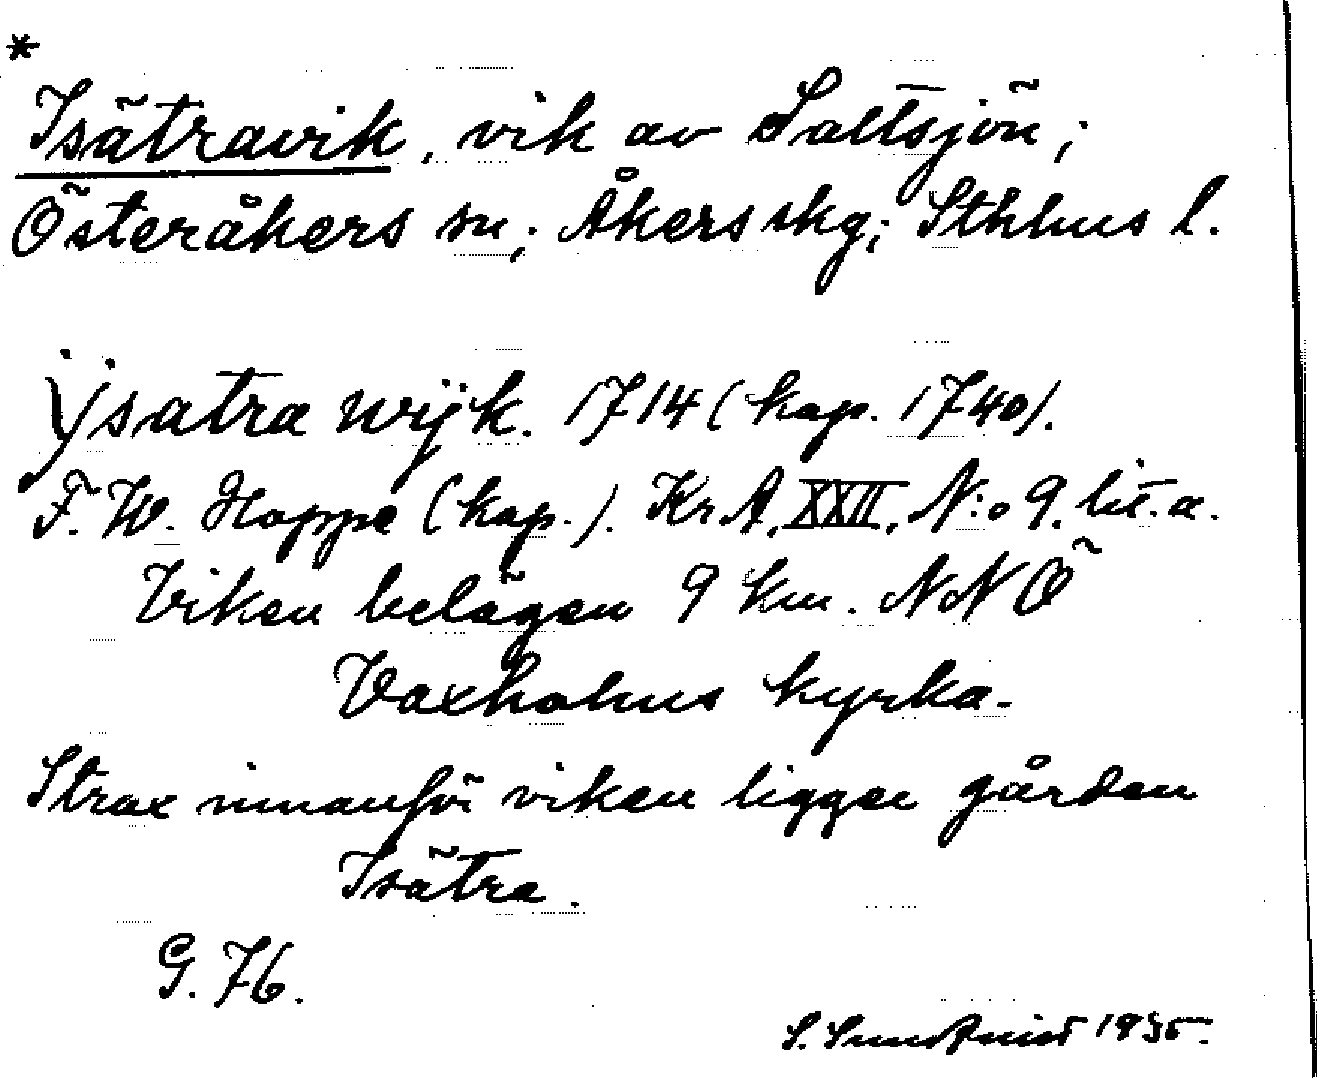 *
Isätravik, vik av Saltsjön;
Österåkers sn; Åkers skg; Sthlms l.
ÿsatra wijk. 1714 (kap. 1740).
F. W. Hoppe (kap.). Kr A, XXII, N:o 9. lit. a.
Viken belägen 9 km. NNÖ
Vaxholms kyrka.
Strax innanför viken ligger gården
Isätra.
G. 76.
S. Sundkvist 1935.